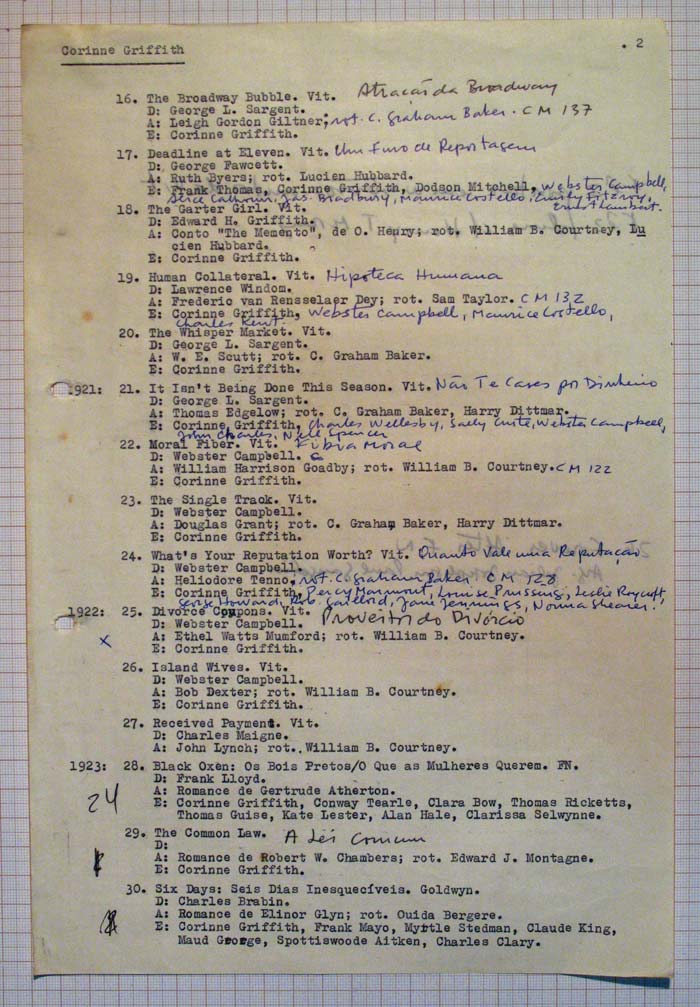 Corinne Griffith
. 2
16. The Broadway Bubble. Vit. Atração da Broadway
D: George L. Sargent.
A: Leigh Gordon Giltner; rot. C. Graham Baker. CM 137
E: Corinne Griffith.
17. Deadline at Eleven. Vit. Um Furo de Reportagem
D: George Fawcett.
A: Ruth Byers; rot. Lucien Hubbard.
E: Frank Thomas, Corinne Griffith, Dodson Mitchell, Webster Campbell,
Alice Calhoun, Jas. Bradbury, Maurice Costello, Emily Fitzroy,
Ernest Lambert.
18. The Garter Girl. Vit.
D: Edward H. Griffith.
A: Conto "The Memento", de O. Henry; rot. William B. Courtney, Lu
cien Hubbard.
E: Corinne Griffith.
19. Human Collateral. Vit. Hipoteca Humana
D: Lawrence Windom.
A: Frederic van Rensselaer Dey; rot. Sam Taylor. CM 132
E: Corinne Griffith, Webster Campbell, Maurice Costello,
Charles Kent.
20. The Whisper Market. Vit.
D: George L. Sargent.
A: W. E. Scutt; rot. C. Graham Baker.
E: Corinne Griffith.
1921: 21. It Isn't Being Done This Season. Vit. Não Te Cases por Dinheiro
D: George L. Sargent.
A: Thomas Edgelow; rot. C. Graham Baker, Harry Dittmar.
E: Corinne Griffith, Charles Wellesby, Sally Crute, Webster Campbell,
John Charles, Nell Spencer
22. Moral Fiber. Vit. Fibra Moral
D: Webster Campbell.
A: William Harrison Goadby; rot. William B. Courtney. CM 122
E: Corinne Griffith.
23. The Single Track. Vit.
D: Webster Campbell.
A: Douglas Grant; rot. C. Graham Baker, Harry Dittmar.
E: Corinne Griffith.
24. What's Your Reputation Worth? Vit. Quanto Vale uma Reputação
D: Webster Campbell.
A: Heliodore Tenno, rot. C. Graham Baker. CM 128
E: Corinne Griffith, Percy Marmont, Louise Prussing, Leslie Roycroft
George Howard, Rob. Gaillord, Jane Jennings, Norma Shearer.
1922: 25. Divorce Coupons. Vit. Proveitos do Divórcio
D: Webster Campbell.
x A: Ethel Watts Mumford; rot. William B. Courtney.
E: Corinne Griffith.
26. Island Wives. Vit.
D: Webster Campbell.
A: Bob Dexter; rot. William B. Courtney.
E: Corinne Griffith.
27. Received Payment. Vit.
D: Charles Maigne.
A: John Lynch; rot. William B. Courtney.
1923: 28. Black Oxen: Os Bois Pretos/O Que as Mulheres Querem. FN.
D: Frank Lloyd.
A: Romance de Gertrude Atherton.
24 E: Corinne Griffith, Conway Tearle, Clara Bow, Thomas Ricketts,
Thomas Guise, Kate Lester, Alan Hale, Clarissa Selwynne.
29. The Common Law. A Lei Comum
D:
A: Romance de Robert W. Chambers; rot. Edward J. Montagne.
E: Corinne Griffith.
30. Six Days: Seis Dias Inesquecíveis. Goldwyn.
D: Charles Brabin.
A: Romance de Elinor Glyn; rot. Ouida Bergere.
E: Corinne Griffith, Frank Mayo, Myrtle Stedman, Claude King,
Maud George, Spottiswoode Aitken, Charles Clary.